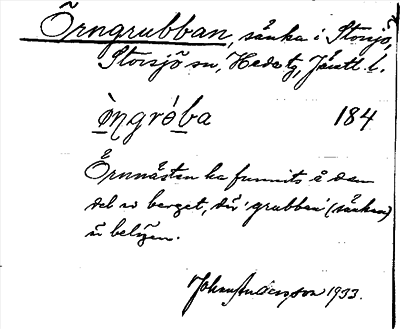 Örngrubban, sänka i Storsjö,
Storsjö sn, Hede tg, Jämtl. l.
ìṇgró̀ba 184
Örnnästen ha funnits å den
del av berget, där 'grubban' (sänkan)
är belägen.
Johan Andersson 1933.